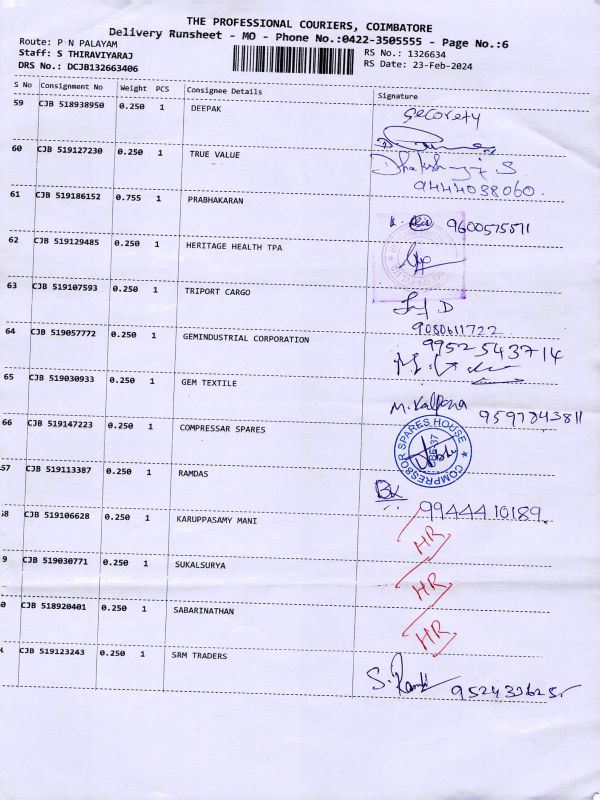 THE PROFESSIONAL COURIERS, COIMBATORE
Delivery Runsheet - MO - Phone No.:0422-3505555 - Page No.:6
Route: P N PALAYAM
Staff: S THIRAVIYARAJ
DRS No.: DCJB132663406
RS No.: 1326634
RS Date: 23-Feb-2024
S No Consignment No Weight PCS Consignee Details Signature
59 CJB 518938950 0.250 1 DEEPAK
60 CJB 519127230 0.250 1 TRUE VALUE
9444038060.
61 CJB 519186152 0.755 1 PRABHAKARAN 9600575571
62 CJB 519129485 0.250 1 HERITAGE HEALTH TPA
63 CJB 519107593 0.250 1 TRIPORT CARGO
9080611722
64 CJB 519057772 0.250 1 GEMINDUSTRIAL CORPORATION 9952543714
65 CJB 519030933 0.250 1 GEM TEXTILE M. Kalpana 9597843811
66 CJB 519147223 0.250 1 COMPRESSAR SPARES COMPRESSOR SPARES HOUSE
67 CJB 519113387 0.250 1 RAMDAS BK 9944410189.
68 CJB 519106628 0.250 1 KARUPPASAMY MANI HR
9 CJB 519030771 0.250 1 SUKALSURYA HR
0 CJB 518920401 0.250 1 SABARINATHAN HR
CJB 519123243 0.250 1 SRM TRADERS